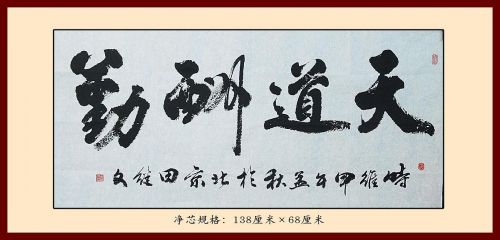 天道酬勤
時維甲午孟秋於北京田継文
净芯规格：138厘米×68厘米